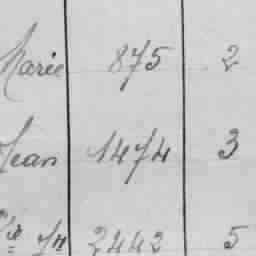 Marie 875 2
Jean 1474 3
2442 5